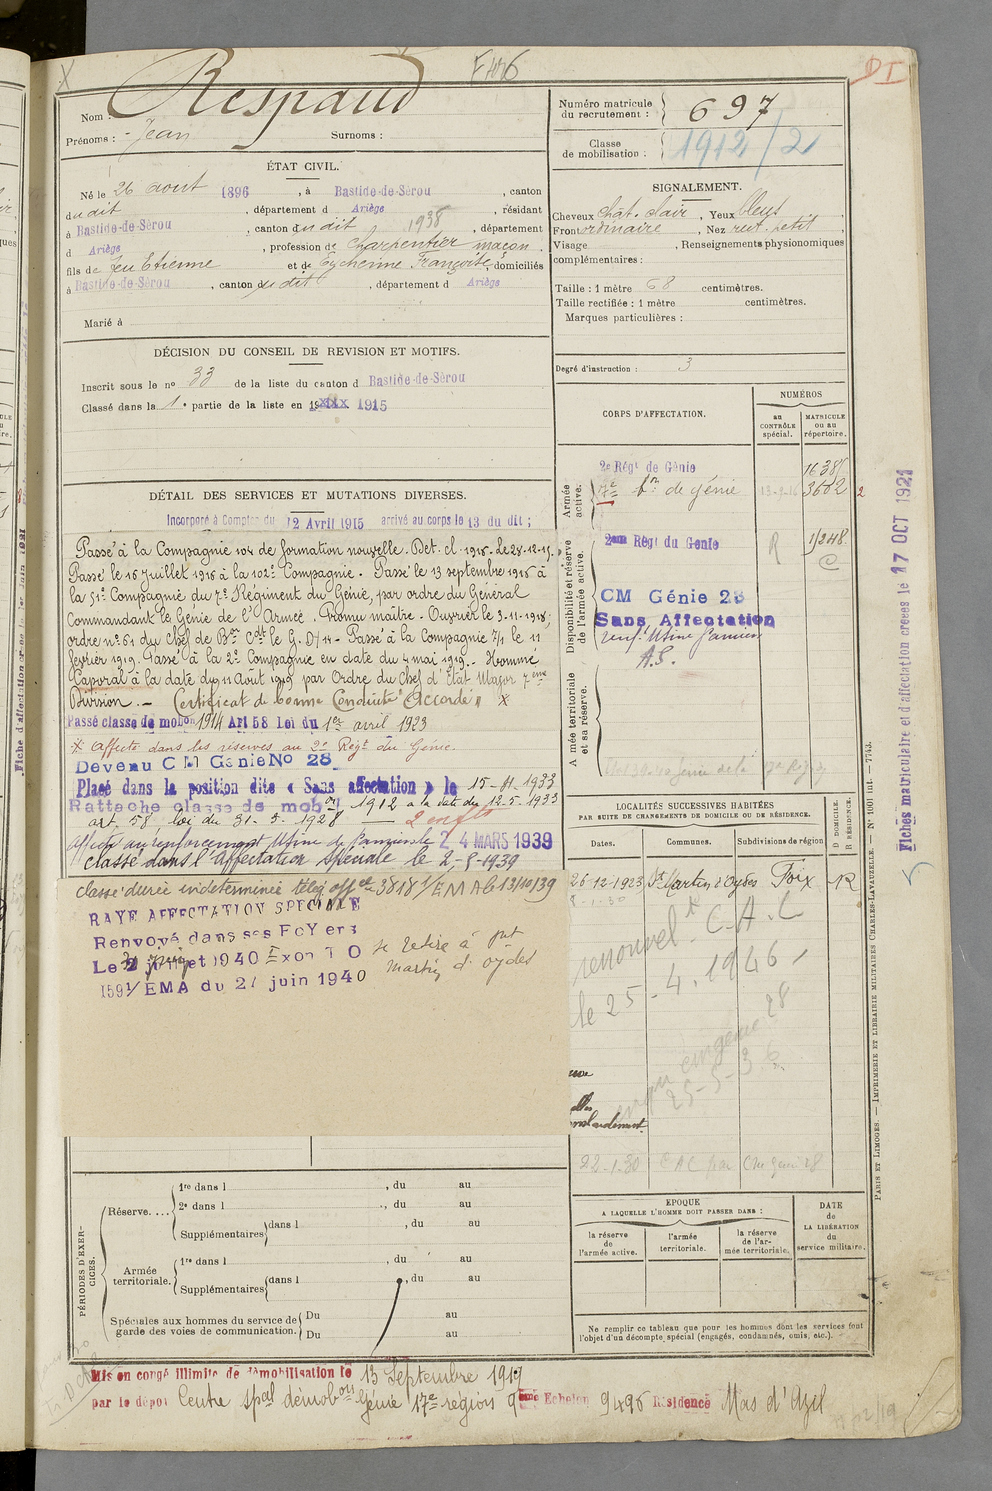 Nom : Respaud
Prénoms : - Jean Surnoms :
Numéro matricule du recrutement : 697
Classe de mobilisation : 1912/2
D I
ÉTAT CIVIL.
Né le 26 aout 1896, à Bastide-de-Sérou, canton
dudit, département d Ariège, résidant
à Bastide-de-Sérou, canton dudit 1938, département
d Ariège, profession de charpentier maçon,
fils de feu Etienne et de Eycherine Françoise, domiciliés
à Bastide-de-Sérou, canton dudit, département d Ariège
Marié à
SIGNALEMENT.
Cheveux chat. clair, Yeux bleus,
Front ordinaire, Nez rect. petit,
Visage , Renseignements physionomiques
complémentaires :
Taille : 1 mètre 68 centimètres.
Taille rectifiée : 1 mètre centimètres.
Marques particulières :
Degré d'instruction : 3
DÉCISION DU CONSEIL DE REVISION ET MOTIFS.
Inscrit sous le n° 33 de la liste du canton d Bastide-de-Sérou
Classé dans la 1e partie de la liste en 19XXX 1915
DÉTAIL DES SERVICES ET MUTATIONS DIVERSES.
Incorporé à Compter du 12 Avril 1915 arrivé au corps le 13 du dit ;
Passé à la Compagnie 104 de formation nouvelle. Det. cl. 1915. Le 28-12-15.
Passé le 16 Juillet 1916 à la 102e Compagnie. Passé le 13 septembre 1916 à
la 51e Compagnie du 7e Régiment du Génie, par ordre du Général
Commandant le Génie de l'Armée. Promu maître-Ouvrier le 3-11-1918;
ordre n° 61 du Chef de Bon Cdt le G. D/14 - Passé à la Compagnie 7/1 le 11
février 1919. Passé à la 2e Compagnie en date du 4 mai 1919. Nommé
Caporal à la date du 11 Août 1919 par Ordre du Chef d'Etat Major 7ème
Division. - Certificat de bonne Conduite "Accordé" X
Passé classe de mobon 1914 Art 58 Loi du 1er avril 1923
X affecté dans les réserves au 2e Régt du Génie.
Devenu C M Génie No 28
Placé dans la position dite « Sans affectation » le 15-11-1933
Rattaché classe de mobon 1912 à la date du 12-5-1933
art. 58 loi du 31-3-1928 — 2 enfts
Affecté au renforcement Usine de Pamiers le 24 MARS 1939
Classé dans l'affectation spéciale le 2-8-1939
classé durée indéterminée télég offel 3818 1/EMA 6 13/10/39
RAYE AFFECTATION SPECIALE
Renvoyé dans ses FoYers
Le 2 juillet 1940 Exon T O
1591/EMA du 27 juin 1940
se retire à St
Martin d'oydes
CORPS D'AFFECTATION.
NUMÉROS
au CONTRÔLE spécial.
MATRICULE ou au répertoire.
Armée active.
2e Régt de Génie 1638
7e bn de génie 3602 2
Disponibilité et réserve de l'armée active.
2ème Régt du Genie R 1/248
CM Génie 28
Sans Affectation
renf. Usine Pamiers
A.S.
Armée territoriale et sa réserve.
LOCALITÉS SUCCESSIVES HABITÉES
PAR SUITE DE CHANGEMENTS DE DOMICILE OU DE RÉSIDENCE.
Dates. Communes. Subdivisions de région
D DOMICILE. R RÉSIDENCE.
26-12-1923 St Martin d'Oydes Foix R
renouvelt C.A.C
le 25-4-1946
25-5-36
22-1-30 CAC par Cm génie 28
PÉRIODES D'EXERCICES.
Réserve.... 1re dans l , du au
2e dans l , du au
Supplémentaires dans l , du au
Armée territoriale. 1re dans l , du au
Supplémentaires dans l , du au
Spéciales aux hommes du service de garde des voies de communication. Du au
Du au
EPOQUE
A LAQUELLE L'HOMME DOIT PASSER DANS :
la réserve de l'armée active.
l'armée territoriale.
la réserve de l'armée territoriale.
DATE de LA LIBÉRATION du service militaire.
Ne remplir ce tableau que pour les hommes dont les services font
l'objet d'un décompte spécial (engagés, condamnés, omis, etc.).
Mis en congé illimité de démobilisation le 13 Septembre 1919
par le dépôt Centre spal démobon Génie 17e région 9ème Echelon 9496 Résidence Mas d'Azil
PARIS ET LIMOGES. — IMPRIMERIE ET LIBRAIRIE MILITAIRES CHARLES-LAVAUZELLE. — N° 1001 int. — 7743.
Fiches matriculaire et d'affectation créées le 17 OCT 1921